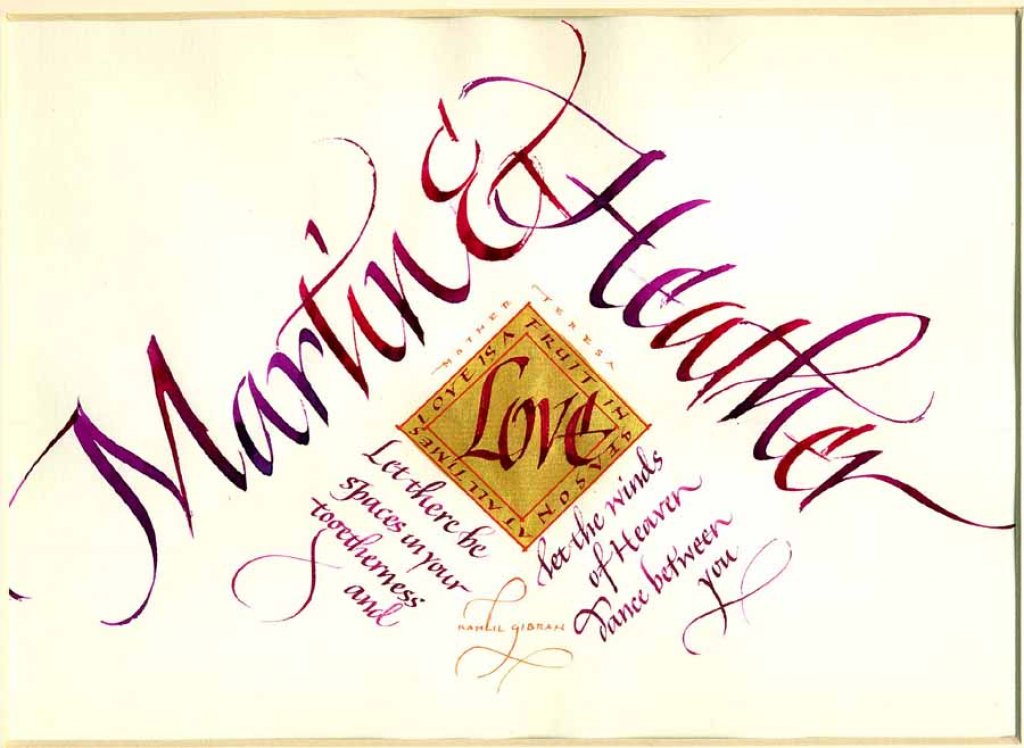 Martin & Heather
MOTHER TERESA
LOVE IS A
FRUIT IN
SEASON
AT ALL TIMES
Love
Let there be
spaces in your
togetherness
and
let the winds
of Heaven
dance between
you
KAHLIL GIBRAN